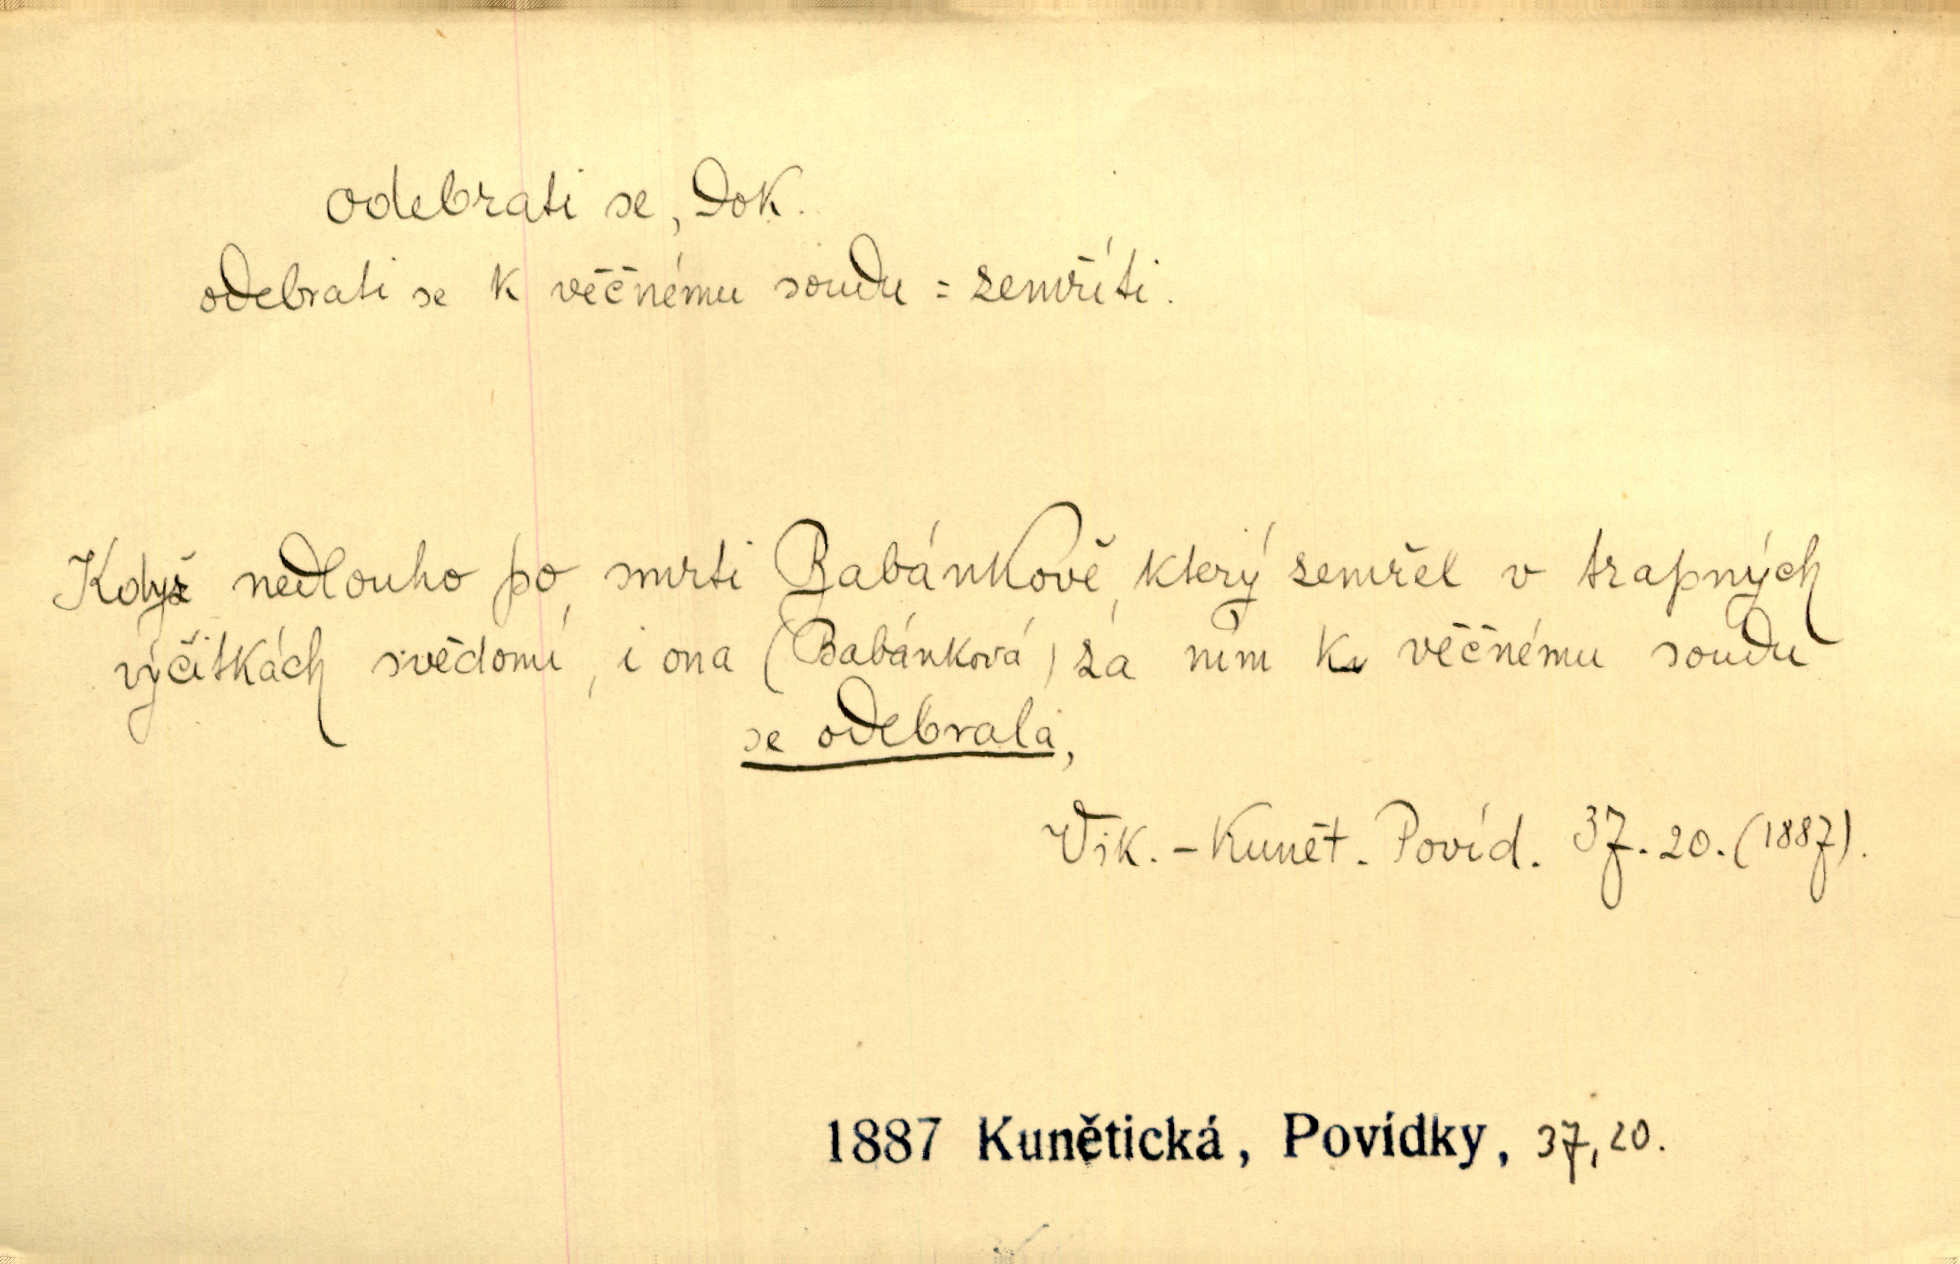 odebrati se, dok.
odebrati se k věčnému soudu = zemříti.
Když nedlouho po smrti Babánkově, který zemřel v trapných
výčitkách svědomí, i ona (Babánková) za ním k věčnému soudu
se odebrala,
Vik. - Kunět. Povíd. 37. 20. (1887).
1887 Kunětická, Povídky, 37, 20.